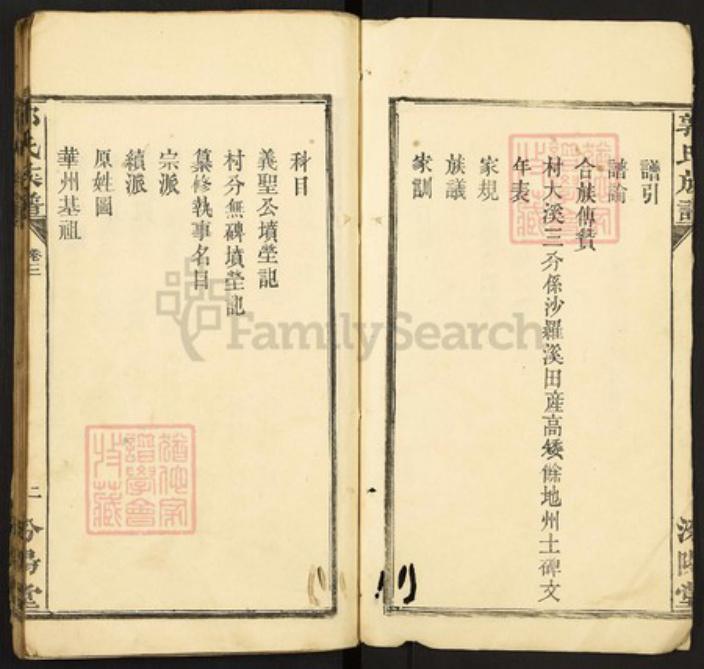 郭氏族譜
汾陽堂
譜引
譜論
合族傳贊
村大溪三分係沙羅溪田產高矮餘地州土碑文
年表
家規
族議
家訓
科目
義聖公墳塋記
村分無碑墳塋記
纂修執事名目
宗派
續派
原姓圖
華州基祖
郭氏族譜
卷三
二
汾陽堂
FamilySearch